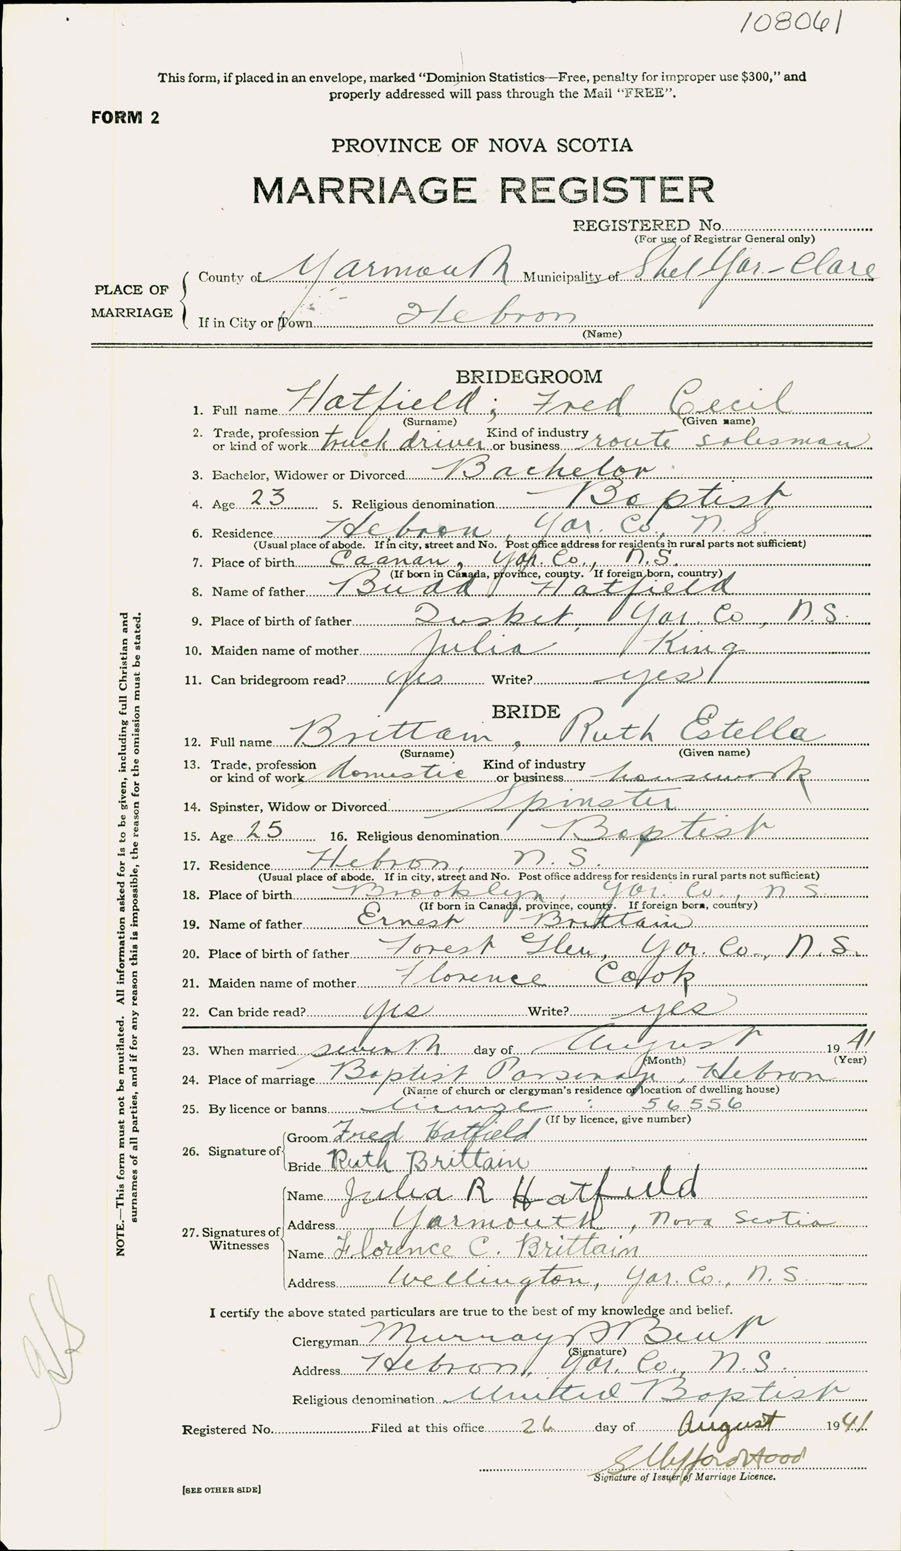 108061
This form, if placed in an envelope, marked "Dominion Statistics—Free, penalty for improper use $300," and
properly addressed will pass through the Mail "FREE".
FORM 2
PROVINCE OF NOVA SCOTIA
MARRIAGE REGISTER
REGISTERED No.
(For use of Registrar General only)
PLACE OF MARRIAGE
County of Yarmouth Municipality of Shel Yar-Clare
If in City or Town Hebron
(Name)
BRIDEGROOM
1. Full name Hatfield; Fred Cecil
(Surname) (Given name)
2. Trade, profession or kind of work truck driver Kind of industry or business route salesman
3. Bachelor, Widower or Divorced Bachelor
4. Age 23 5. Religious denomination Baptist
6. Residence Hebron, Yar. Co., N.S.
(Usual place of abode. If in city, street and No. Post office address for residents in rural parts not sufficient)
7. Place of birth Caanan, Yar. Co., N.S.
(If born in Canada, province, county. If foreign born, country)
8. Name of father Budd Hatfield
9. Place of birth of father Tusket, Yar. Co., N.S.
10. Maiden name of mother Julia King
11. Can bridegroom read? yes Write? yes
BRIDE
12. Full name Brittain, Ruth Estella
(Surname) (Given name)
13. Trade, profession or kind of work domestic Kind of industry or business housework
14. Spinster, Widow or Divorced Spinster
15. Age 25 16. Religious denomination Baptist
17. Residence Hebron, N.S.
(Usual place of abode. If in city, street and No. Post office address for residents in rural parts not sufficient)
18. Place of birth Brooklyn, Yar. Co., N.S.
(If born in Canada, province, county. If foreign born, country)
19. Name of father Ernest Brittain
20. Place of birth of father Forest Glen, Yar. Co., N.S.
21. Maiden name of mother Florence Cook
22. Can bride read? yes Write? yes
23. When married seventh day of August 1941
(Month) (Year)
24. Place of marriage Baptist Parsonage, Hebron
(Name of church or clergyman's residence or location of dwelling house)
25. By licence or banns license : 56556
(If by licence, give number)
26. Signature of
Groom Fred Hatfield
Bride Ruth Brittain
27. Signatures of Witnesses
Name Julia R Hatfield
Address Yarmouth, Nova Scotia
Name Florence C. Brittain
Address Wellington, Yar. Co., N.S.
I certify the above stated particulars are true to the best of my knowledge and belief.
Clergyman Murray Bent
(Signature)
Address Hebron, Yar. Co., N.S.
Religious denomination United Baptist
Registered No. Filed at this office 26 day of August 1941
Signature of Issuer of Marriage Licence.
[SEE OTHER SIDE]
NOTE.—This form must not be mutilated. All information asked for is to be given, including full Christian and
surnames of all parties, and if for any reason this is impossible, the reason for the omission must be stated.